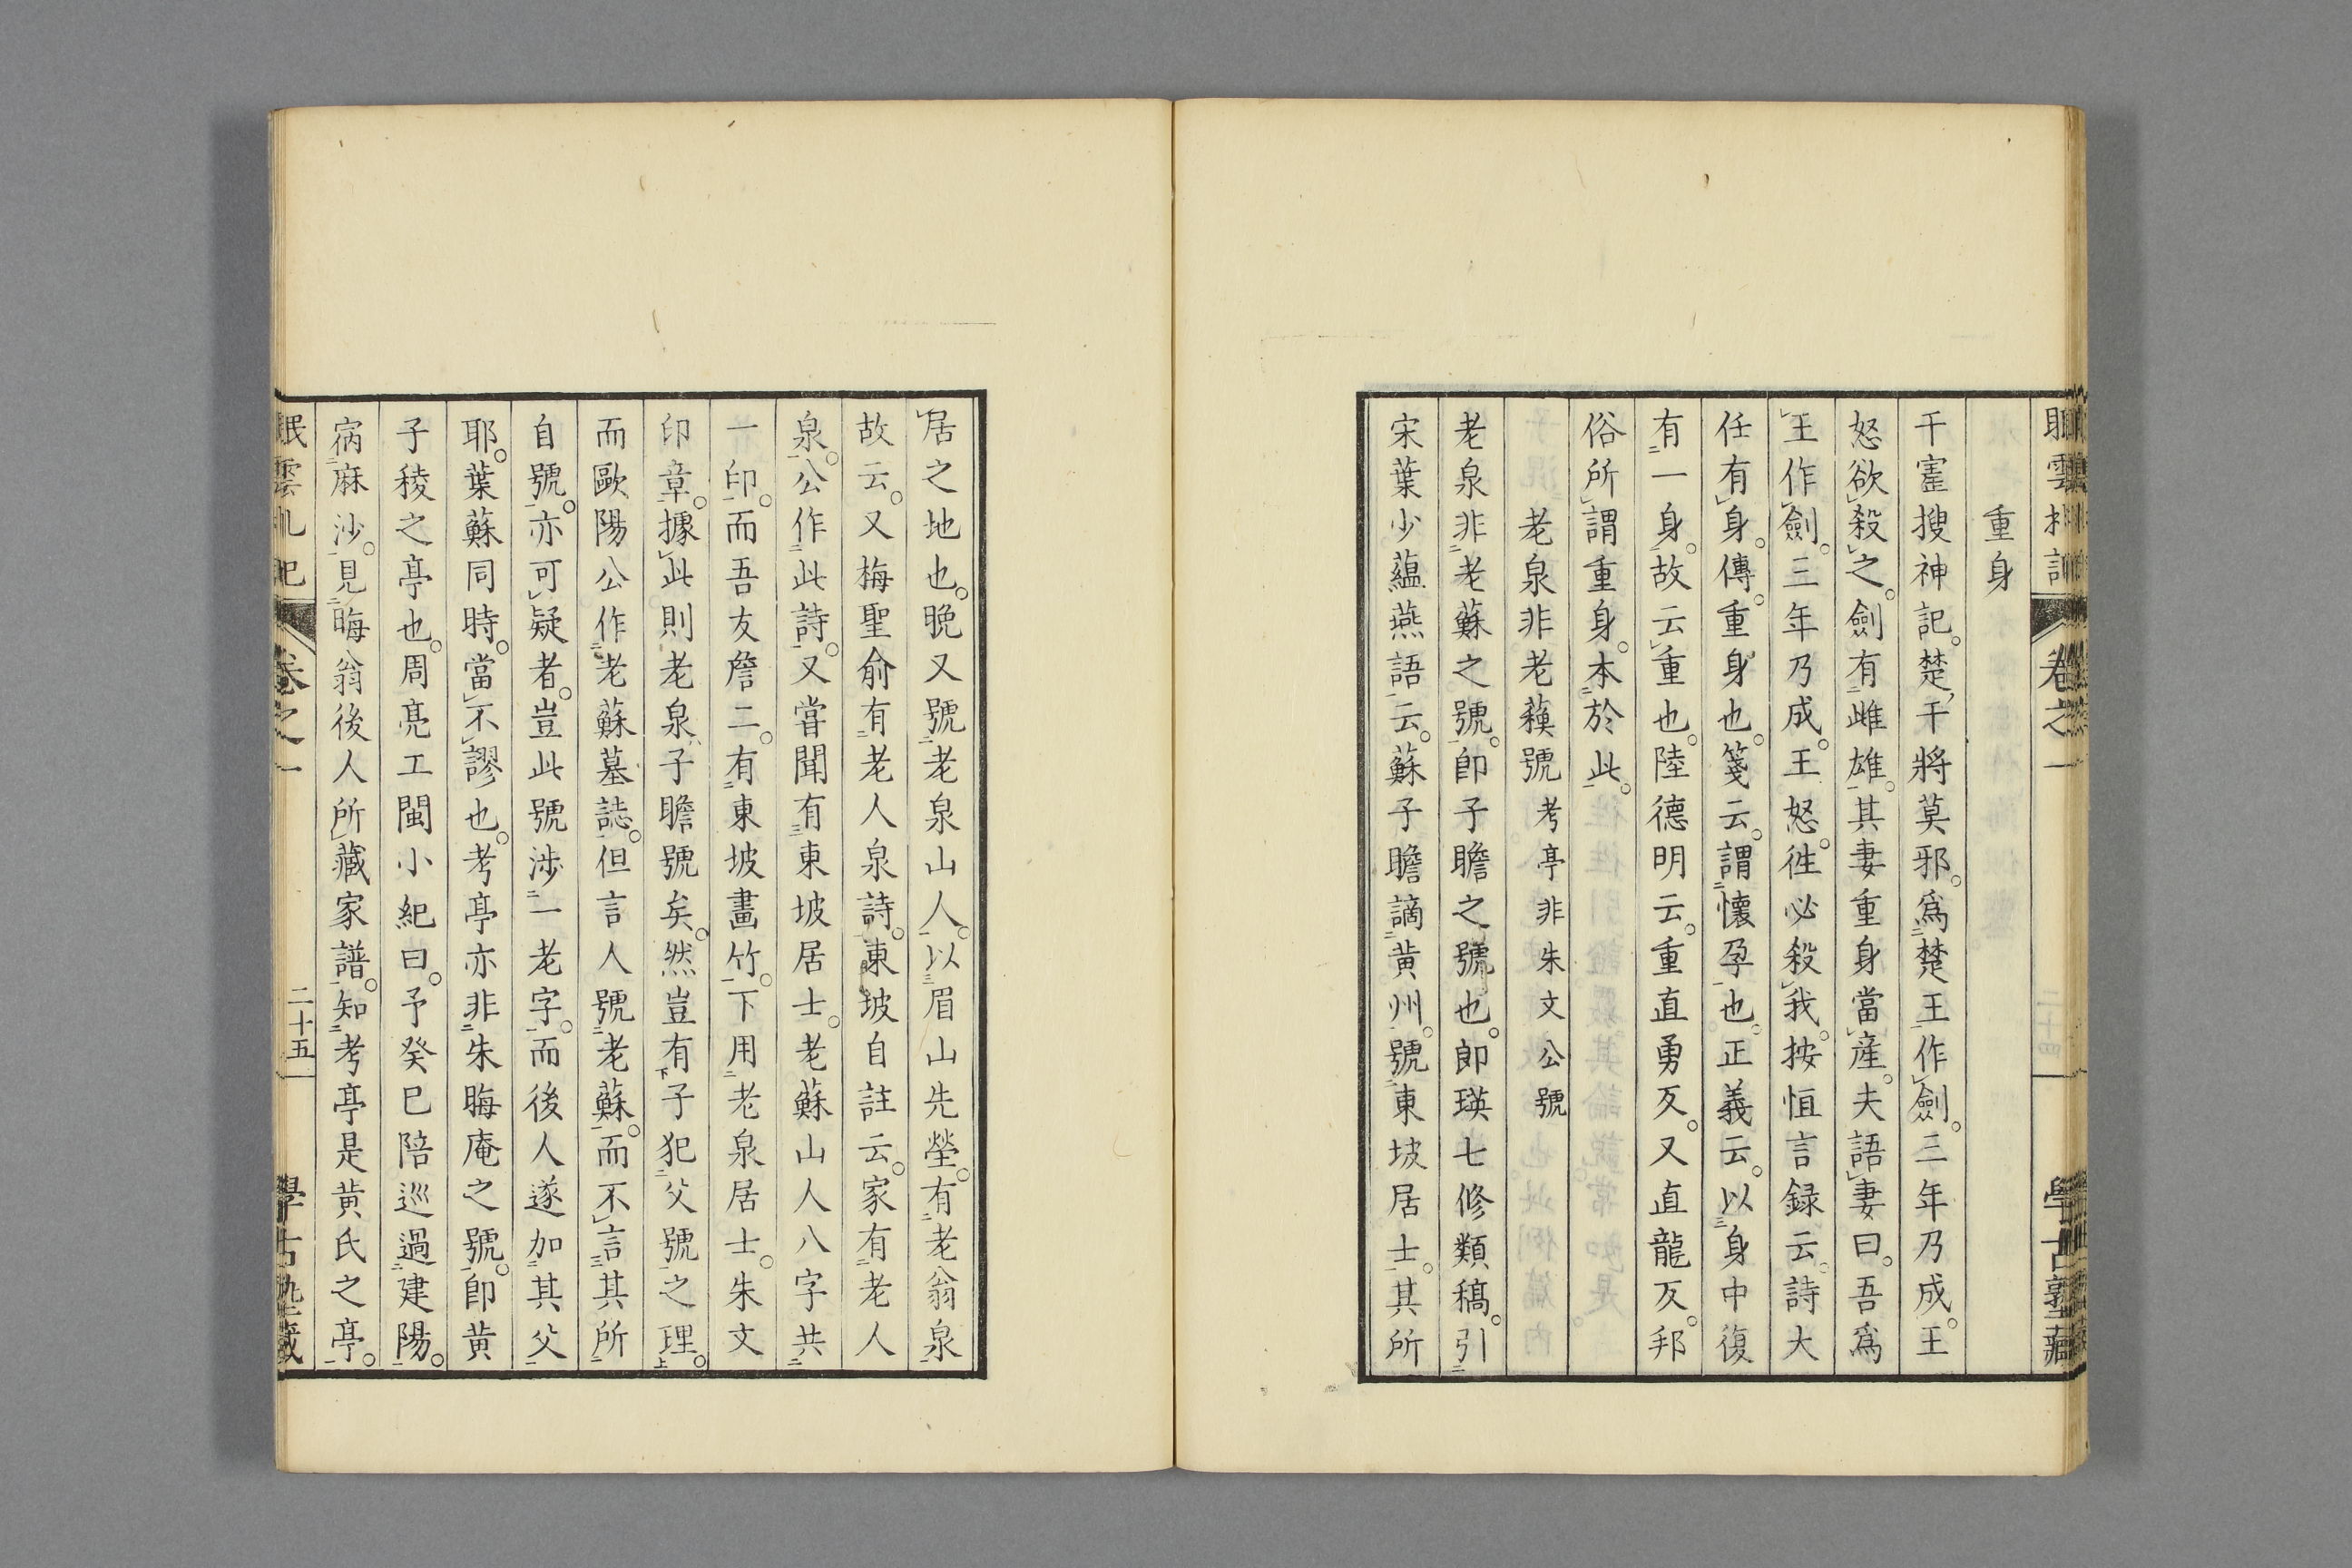 重身
干寚搜神記。楚干將莫邪。爲楚王作劍。三年乃成。王
怒欲殺之。劍有雌雄。其妻重身當產。夫語妻曰。吾爲
王作劍。三年乃成。王怒。徃必殺我。按恒言録云。詩大
任有身。傳。重身也。箋云。謂懷孕也。正義云。以身中復
有一身。故云重也。陸德明云。重直勇反。又直龍反。邦
俗所謂重身。本於此。
老泉非老蘓號 考亭非朱文公號
老泉非老蘇之號。卽子瞻之號也。郎瑛七修類稿。引
宋葉少蘊燕語云。蘇子瞻謫黃州。號東坡居士。其所
居之地也。晩又號老泉山人。以眉山先塋。有老翁泉
故云。又梅聖俞有老人泉詩。東坡自註云。家有老人
泉。公作此詩。又嘗聞有東坡居士。老蘇山人八字共
一印。而吾友詹二。有東坡畫竹。下用老泉居士。朱文
印章。據此則老泉子瞻號矣。然豈有子犯父號之理。
而歐陽公作老蘇墓誌。但言人號老蘇。而不言其所
自號。亦可疑者。豈此號涉一老字。而後人遂加其父
耶。葉蘇同時。當不謬也。考亭亦非朱晦庵之號。卽黃
子稜之亭也。周亮工閩小紀曰。予癸巳陪巡過建陽。
病麻沙。見晦翁後人所藏家譜。知考亭是黃氏之亭。
卷之一
二十五